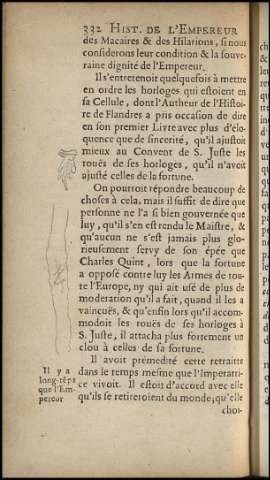 332 HIST. DE L'EMPEREUR
des Macaires & des Hilarions, si nous
considerons leur condition & la souve-
raine dignité de l'Empereur.
Ils'entretenoit quelquefois à mettre
en ordre les horloges qui estoient en
sa Cellule, dont l'Autheur de l'Histoi-
re de Flandres a pris occasion de dire
en son premier Livre avec plus d'élo-
quence que de sincerité, qu'il ajustoit
mieux au Convent de S. Juste les
rouës de ses horloges, qu'il n'avoit
ajusté celles de la fortune.
On pourroit répondre beaucoup de
choses à cela, mais il suffit de dire que
personne ne l'a si bien gouvernée que
luy, qu'il s'en est rendu le Maistre, &
qu'aucun ne s'est jamais plus glo-
rieusement servy de son épée que
Charles Quint, lors que la fortune
a opposé contre luy les Armes de tou-
te l'Europe, ny qui ait usé de plus de
moderation qu'il a fait, quand il les a
vaincuës, & qu'enfin lors qu'il accom-
modoit les rouës de ses horloges à
S. Juste, il attacha plus fortement un
clou à celles de sa fortune.
Il avoit premedité cette retraitte
Il y a
long-tẽps
que l'Em-
pereur
dans le temps mesme que l'Imperatri-
ce vivoit. Il estoit d'accord avec elle
qu'ils se retireroient du monde; qu'elle
choi-